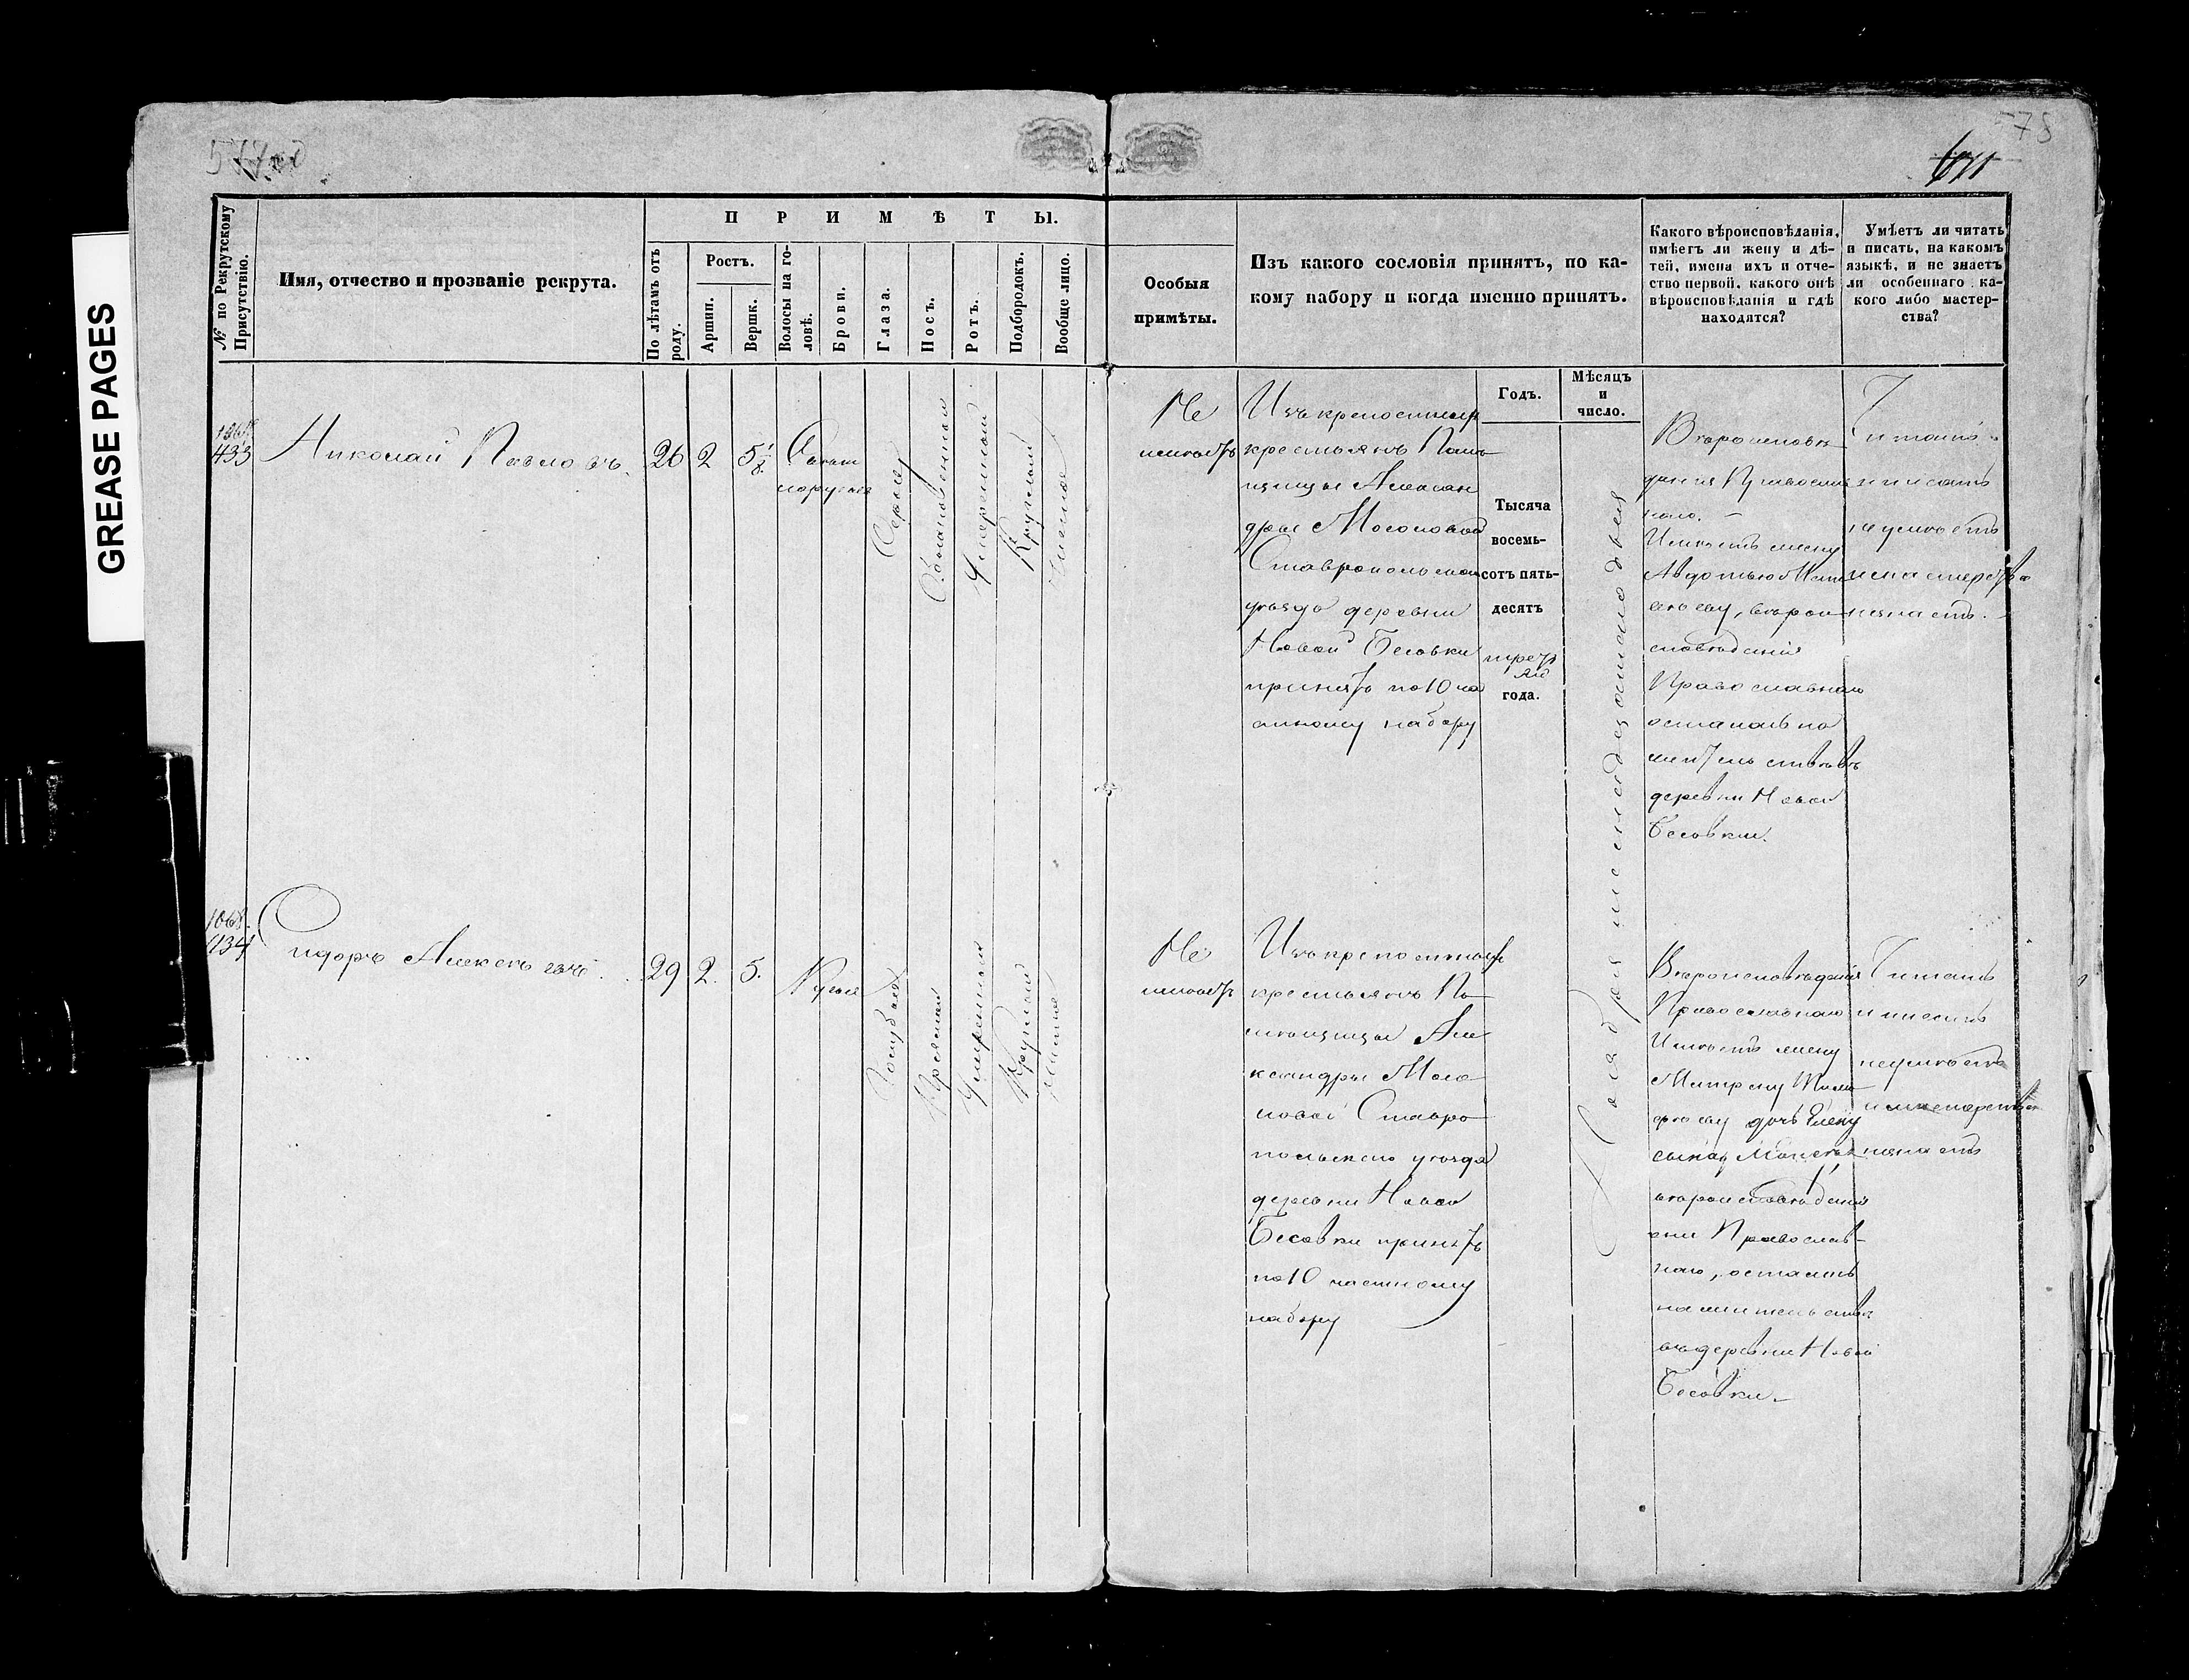 GREASE PAGES
577об
578
671
№ по Рекрутскому
Присутствію.
Имя, отчество и прозваніе рекрута.
ПРИМѢТЫ.
По лѣтамъ отъ
роду.
Ростъ.
Аршин.
Вершк.
Волосы на го-
ловѣ.
Брови.
Глаза.
Носъ.
Ротъ.
Подбородокъ.
Вообще лицо.
Особыя
примѣты.
Изъ какого сословія принятъ, по ка-
кому набору и когда именно принятъ.
Годъ.
Мѣсяцъ
и
число.
Какого вѣроисповѣданія,
имѣетъ ли жену и дѣ-
тей, имена ихъ и отче-
ство первой, какого онѣ
вѣроисповѣданія и гдѣ
находятся?
Умѣетъ ли читать
и писать, на какомъ
языкѣ, и не знаетъ
ли особеннаго ка-
кого либо мастер-
ства?
433
Николай Павловъ.
26
2
5½
русыя
Серые
Умеренный
Круглый
Чистое
Не
имеетъ
Изъ крепостныхъ
крестьянъ Поме
щицы Алексан
дры
Ставропольскаго
уезда деревни
Новой Бесовки
принятъ по 10 ча
стному набору
Тысяча
восемь-
сотъ пять-
десятъ
третьяго
года.
Ноября шестнадцатого дня
Вероисповѣ
дания Православ
наго.
Имѣетъ жену
Авдотью
ѣеву, вѣрои
сповѣдания
Православнаго
осталась на
жительствѣ въ
деревни Новой
Бесовки.
Читать
и писать
не умѣетъ
и мастерства
незнаетъ.
1068
434
Сидоръ Алексѣевъ.
29
2.
5.
Русые
Голубые
Умеренный
Круглый
чистое
Не
имеетъ
Изъ крепостныхъ
крестьянъ По
мѣщицы Але
ксандры
Ставро
польскаго уезда
деревни Новой
Бесовки принятъ
по 10 частному
набору
Вѣроисповѣдания
Православнаго
Имѣетъ жену
Матрену
ѣеву дочь Елену
сына
вѣроисповѣдания
они Православ-
наго, остались
на жительствѣ
въ деревни Новой
Бесовки.
Читать
и писать
неумѣетъ
и мастерства
незнаетъ